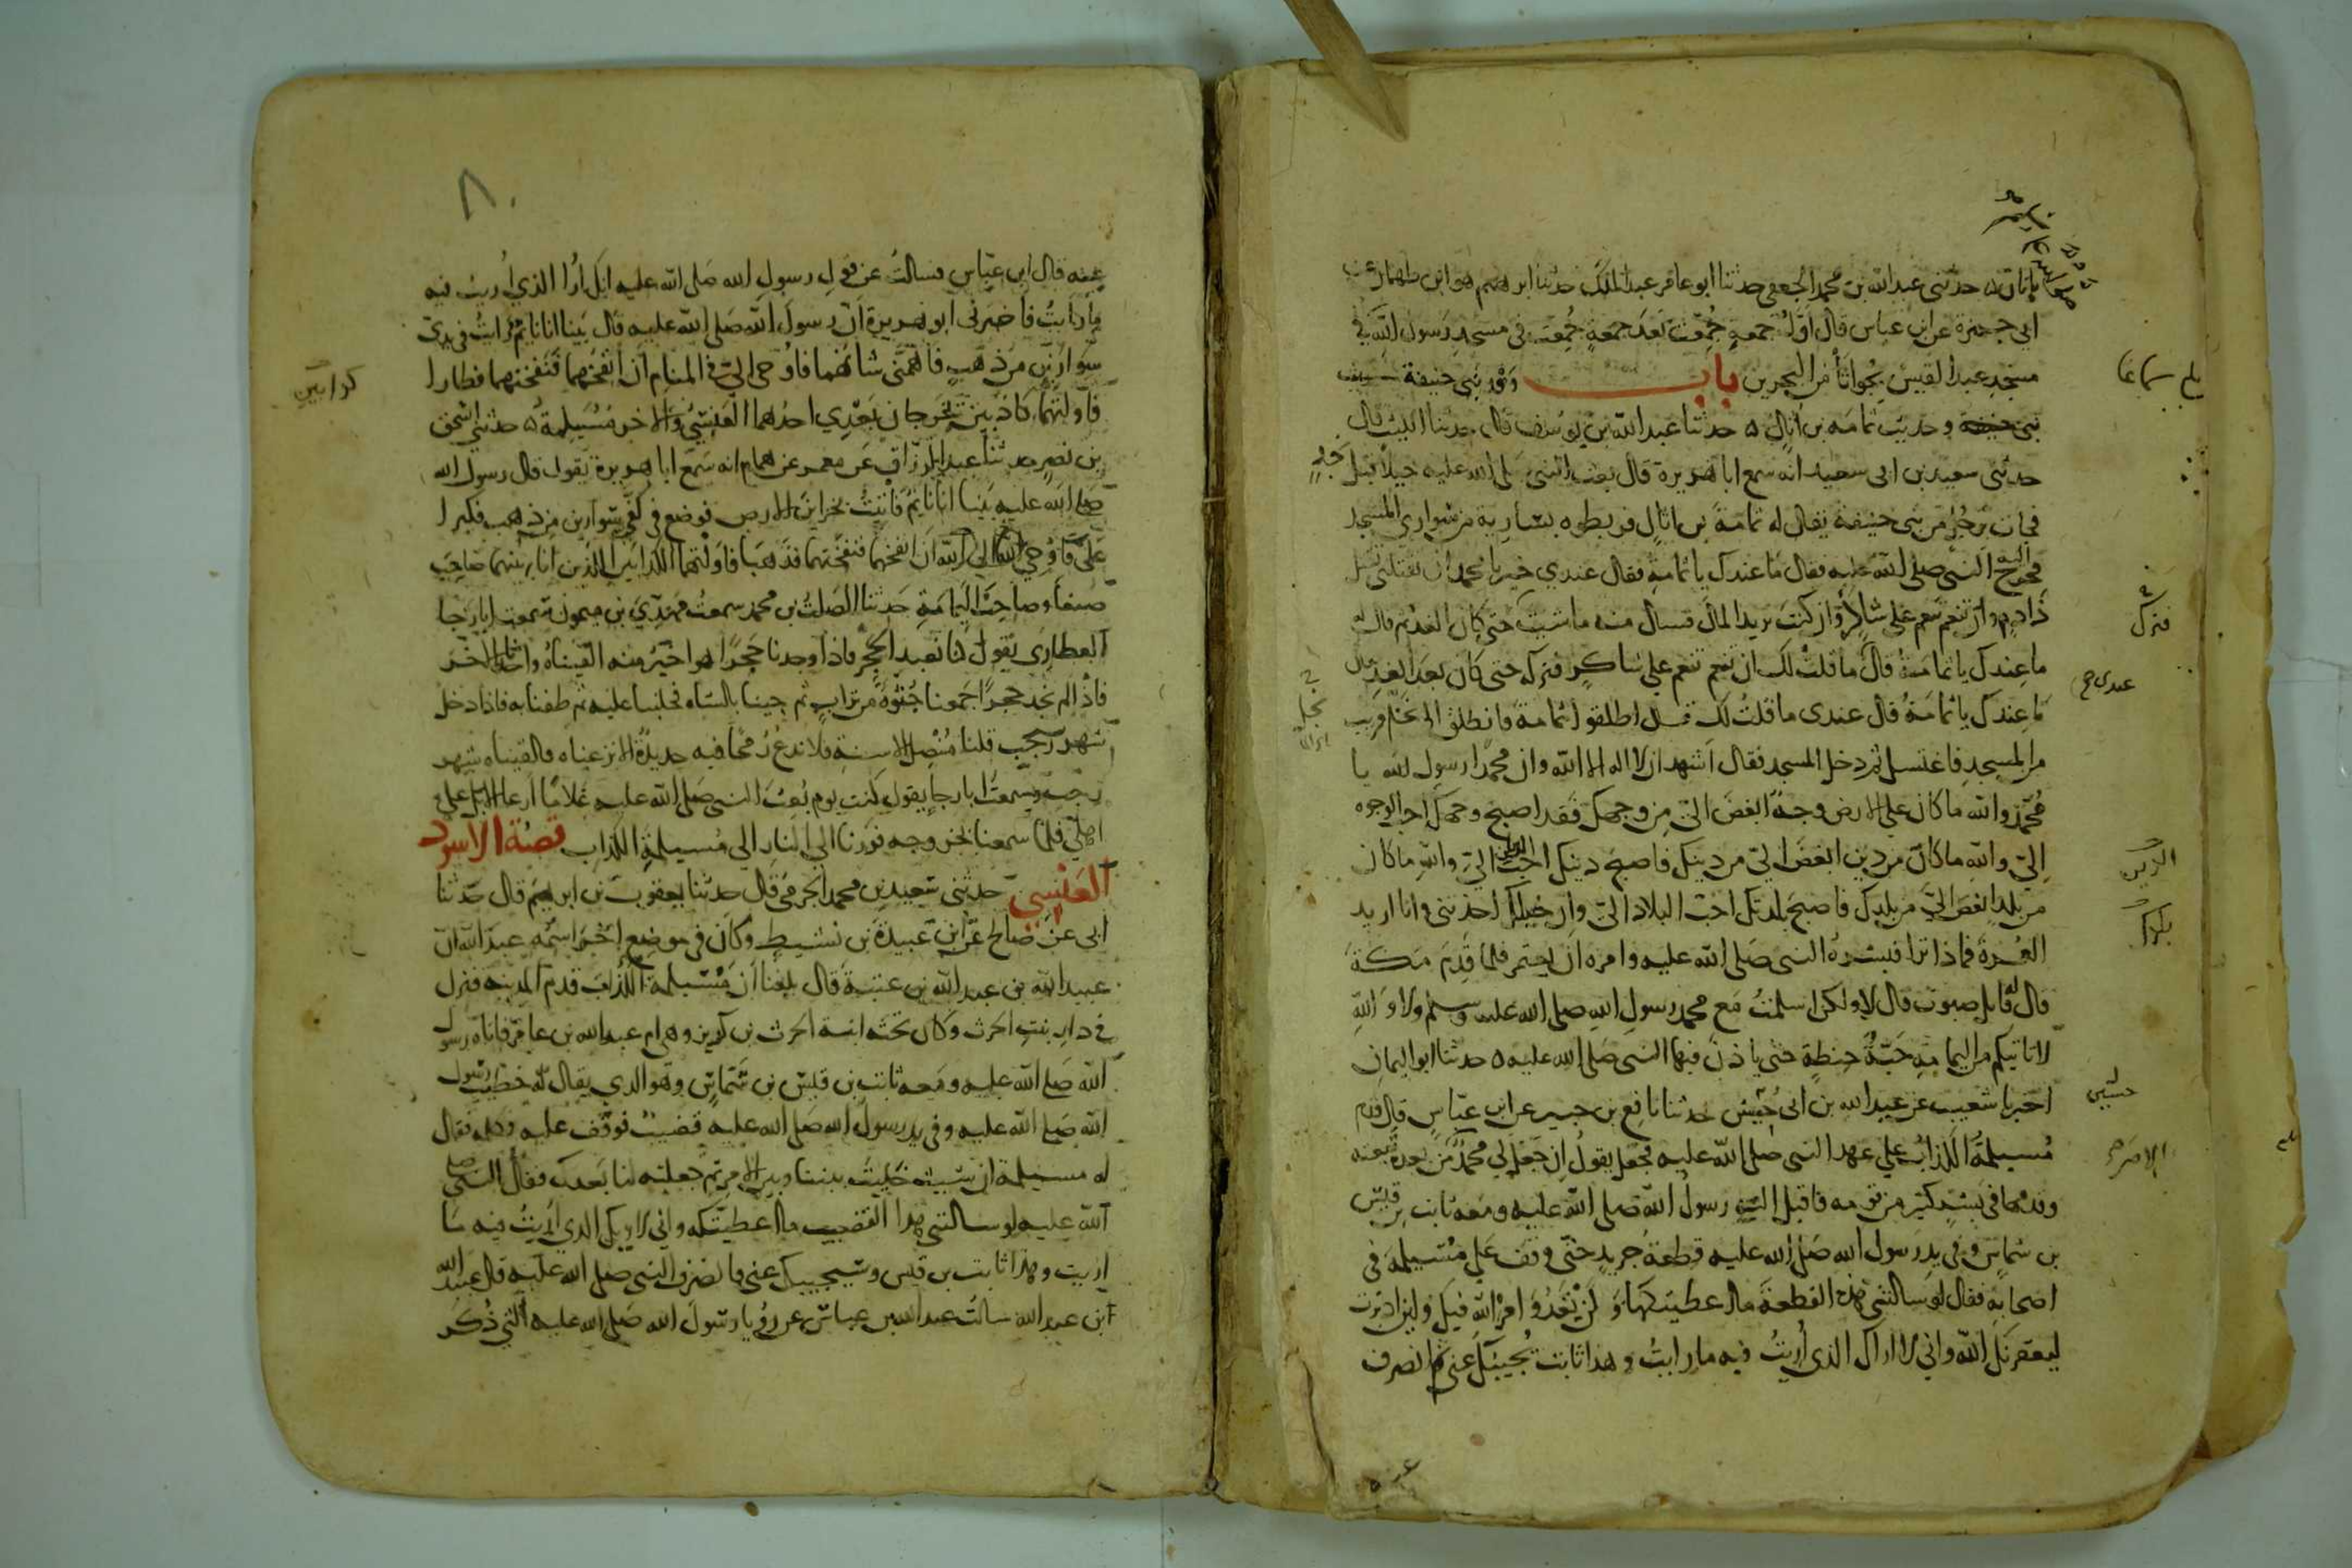 حدثنى عبد الله بن محمد الجعفى حدثنا ابو عامر عبد الملك حدثنا ابرهيم هو ابن طهمان عن
ابى جمرة عن ابن عباس قال اول جمعة جمعت بعد جمعة جمعت فى مسجد رسول الله فى
مسجد عبد القيس بجواثا من البحرين باب وفد بنى حنيفة
بنى حنيفة وحديث ثمامة بن اثال حدثنا عبد الله بن يوسف قال حدثنا الليث قال
حدثنى سعيد بن ابى سعيد انه سمع ابا هريرة قال بعث النبى صلى الله عليه خيلا قبل نجد
فجات برجل من بنى حنيفة يقال له ثمامة بن اثال فربطوه بسارية من سوارى المسجد
فخرج اليه النبى صلى الله عليه فقال ما عندك يا ثمامة فقال عندى خير يا محمد ان تقتلنى تقتل
ذا دم وان تنعم تنعم على شاكر وان كنت تريد المال فسال منه ما شيت حتى كان الغد ثم قال له
ما عندك يا ثمامة قال ما قلت لك ان تنعم تنعم على شاكر فتركه حتى كان بعد الغد فقال
ما عندك يا ثمامة قال عندى ما قلت لك قال اطلقوا ثمامة فانطلق الى نخل قريب
من المسجد فاغتسل ثم دخل المسجد فقال اشهد ان لا اله الا الله وان محمدا رسول الله يا
محمد والله ما كان على الارض وجه ابغض الى من وجهك فقد اصبح وجهك احب الوجوه
الى والله ما كان من دين ابغض الى من دينك فاصبح دينك احب الدين الى والله ما كان
من بلد ابغض الى من بلدك فاصبح بلدك احب البلاد الى وان خيلك اخذتنى وانا اريد
العمرة فماذا ترا فبشره النبى صلى الله عليه وامره ان يعتمر فلما قدم مكة
قال له قايل صبوت قال لا ولكن اسلمت مع محمد رسول الله صلى الله عليه وسلم ولا والله
لا تاتيكم من اليمامة حبة حنطة حتى ياذن فيها النبى صلى الله عليه حدثنا ابو اليمان
اخبرنا شعيب عن عبد الله بن ابى حسين حدثنا نافع بن جبير عن ابن عباس قال قدم
مسيلمة الكذاب على عهد النبى صلى الله عليه فجعل يقول ان جعل لى محمد من بعده تبعته
وقدمها فى بشر كثير من قومه فاقبل اليه رسول الله صلى الله عليه ومعه ثابت بن قيس
بن شماس وفى يد رسول الله صلى الله عليه قطعة جريد حتى وقف على مسيلمة فى
اصحابه فقال لو سالتنى هذه القطعة ما اعطيتكها ولن تعدو امر الله فيك ولين ادبرت
ليعقرنك الله وانى لا اراك الذى اريت فيه ما رايت وهذا ثابت يجيبك عنى ثم انصرف
فترك
عندى
الدين
بلدك
حسين
الامر
٨٠
عنه قال ابن عباس فسالت عن قول رسول الله صلى الله عليه انك ارا الذى اريت فيه
ما رايت فاخبرنى ابو هريرة ان رسول الله صلى الله عليه قال بينا انا نايم رايت فى يدى
سوارين من ذهب فاهمنى شانهما فاوحى الى فى المنام ان انفخهما فنفختهما فطارا
فاولتهما كاذبين يخرجان بعدى احدهما العنسى والاخر مسيلمة حدثنى اسحق
بن نصر حدثنا عبد الرزاق عن معمر عن همام انه سمع ابا هريرة يقول قال رسول الله
صلى الله عليه بينا انا نايم فاتيت بخزاين الارض فوضع فى كفى سوارين من ذهب فكبرا
على فاوحى الله الى ان انفخهما فنفختهما فذهبا فاولتهما الكذابين الذين انا بينهما صاحب
صنعا وصاحب اليمامة حدثنا الصلت بن محمد سمعت مهدى بن ميمون سمعت ابا رجا
العطاردى يقول كنا نعبد الحجر فاذا وجدنا حجرا هو اخير منه القيناه واخذنا الاخر
فاذا لم نجد حجرا جمعنا جثوة من تراب ثم جينا بالشاه فحلبنا عليه ثم طفنا به فاذا دخل
شهر رجب قلنا منصل الاسنة فلا ندع رمحا فيه حديدة الا نزعناه والقيناه شهر
رجب وسمعت ابا رجا يقول كنت يوم بعث النبى صلى الله عليه غلاما ارعا الابل على
اهلى فلما سمعنا بخروجه فررنا الى النار الى مسيلمة الكذاب قصة الاسود
العنسى حدثنى سعيد بن محمد الجرمى قال حدثنا يعقوب بن ابرهيم قال حدثنا
ابى عن صالح عن ابن عبيدة بن نشيط وكان فى موضع اخر اسمه عبد الله ان
عبيد الله بن عبد الله بن عتبة قال بلغنا ان مسيلمة الكذاب قدم المدينة فنزل
فى دار بنت الحرث وكان تحته ابنة الحرث بن كريز وهى ام عبد الله بن عامر فاتاه رسول
الله صلى الله عليه ومعه ثابت بن قيس بن شماس وهو الذى يقال له خطيب رسول
الله صلى الله عليه وفى يد رسول الله صلى الله عليه قضيب فوقف عليه وكلمه فقال
له مسيلمة ان شيت خليت بيننا وبين الامر ثم جعلته لنا بعدك فقال النبى صلى
الله عليه لو سالتنى هذا القضيب ما اعطيتكه وانى لاريك الذى اريت فيه ما
اريت وهذا ثابت بن قيس وسيجيبك عنى فانصرف النبى صلى الله عليه قال عبيد الله
ابن عبد الله سالت عبد الله بن عباس عن رؤيا رسول الله صلى الله عليه التى ذكر
كذابين